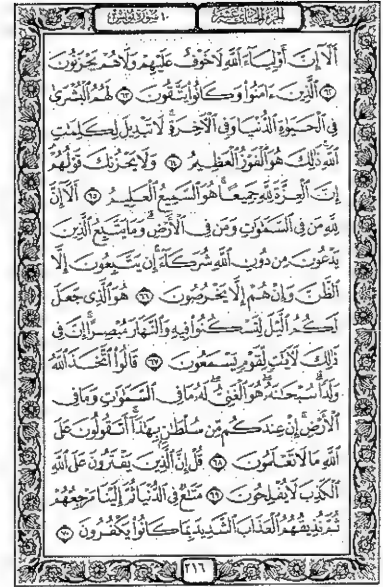 الجزء الحادي عشر
١٠ سورة يونس
أَلَآ إِنَّ أَوْلِيَآءَ ٱللَّهِ لَا خَوْفٌ عَلَيْهِمْ وَلَا هُمْ يَحْزَنُونَ
٦٢ ٱلَّذِينَ ءَامَنُوا۟ وَكَانُوا۟ يَتَّقُونَ ٦٣ لَهُمُ ٱلْبُشْرَىٰ
فِى ٱلْحَيَوٰةِ ٱلدُّنْيَا وَفِى ٱلْءَاخِرَةِ ۚ لَا تَبْدِيلَ لِكَلِمَٰتِ
ٱللَّهِ ۚ ذَٰلِكَ هُوَ ٱلْفَوْزُ ٱلْعَظِيمُ ٦٤ وَلَا يَحْزُنكَ قَوْلُهُمْ ۘ
إِنَّ ٱلْعِزَّةَ لِلَّهِ جَمِيعًا ۚ هُوَ ٱلسَّمِيعُ ٱلْعَلِيمُ ٦٥ أَلَآ إِنَّ
لِلَّهِ مَن فِى ٱلسَّمَٰوَٰتِ وَمَن فِى ٱلْأَرْضِ ۗ وَمَا يَتَّبِعُ ٱلَّذِينَ
يَدْعُونَ مِن دُونِ ٱللَّهِ شُرَكَآءَ ۚ إِن يَتَّبِعُونَ إِلَّا
ٱلظَّنَّ وَإِنْ هُمْ إِلَّا يَخْرُصُونَ ٦٦ هُوَ ٱلَّذِى جَعَلَ
لَكُمُ ٱلَّيْلَ لِتَسْكُنُوا۟ فِيهِ وَٱلنَّهَارَ مُبْصِرًا ۚ إِنَّ فِى
ذَٰلِكَ لَءَايَٰتٍ لِّقَوْمٍ يَسْمَعُونَ ٦٧ قَالُوا۟ ٱتَّخَذَ ٱللَّهُ
وَلَدًا ۗ سُبْحَٰنَهُۥ ۖ هُوَ ٱلْغَنِىُّ ۖ لَهُۥ مَا فِى ٱلسَّمَٰوَٰتِ وَمَا فِى
ٱلْأَرْضِ ۚ إِنْ عِندَكُم مِّن سُلْطَٰنٍۭ بِهَٰذَآ ۚ أَتَقُولُونَ عَلَى
ٱللَّهِ مَا لَا تَعْلَمُونَ ٦٨ قُلْ إِنَّ ٱلَّذِينَ يَفْتَرُونَ عَلَى ٱللَّهِ
ٱلْكَذِبَ لَا يُفْلِحُونَ ٦٩ مَتَٰعٌ فِى ٱلدُّنْيَا ثُمَّ إِلَيْنَا مَرْجِعُهُمْ
ثُمَّ نُذِيقُهُمُ ٱلْعَذَابَ ٱلشَّدِيدَ بِمَا كَانُوا۟ يَكْفُرُونَ ٧٠
٢١٦